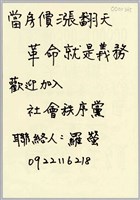 當房價漲翻天
革命就是義務
歡迎加入
社會秩序黨
聯絡人：羅瑩
0922116218